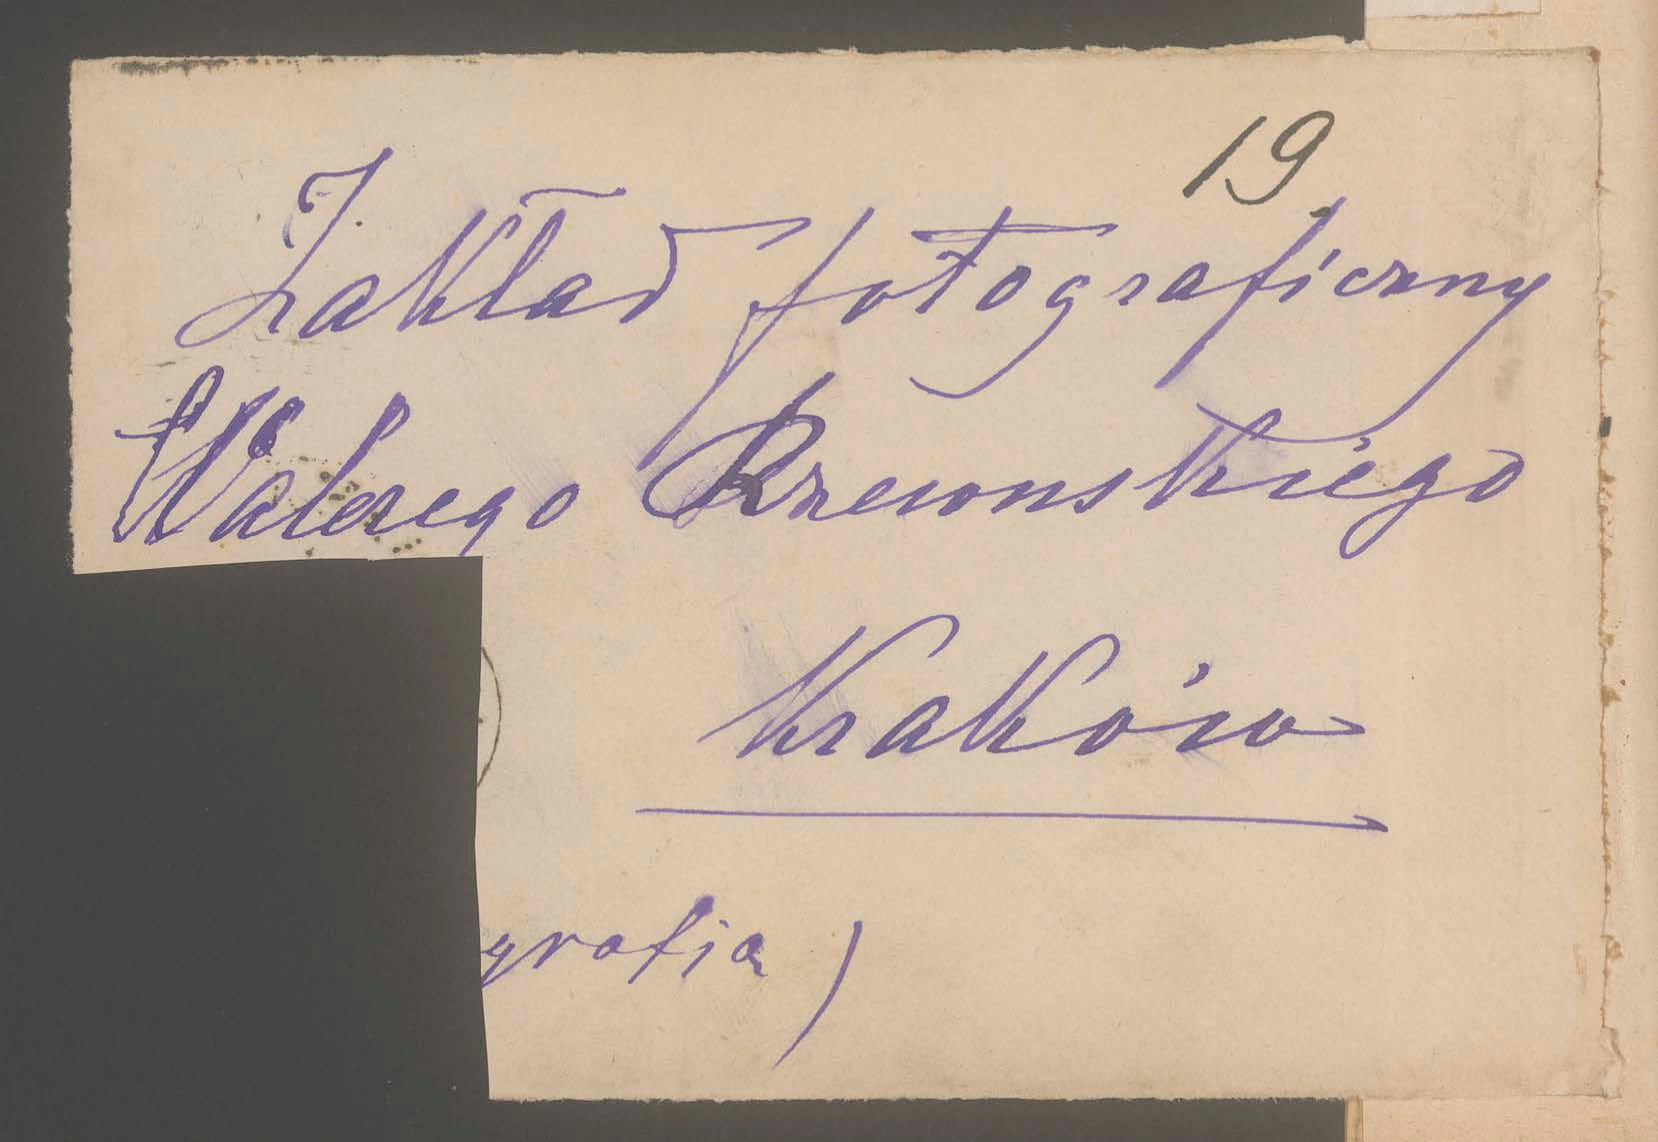 19.
Zakład fotograficzny
Walerego Rzewuskiego
Kraków
grafia)